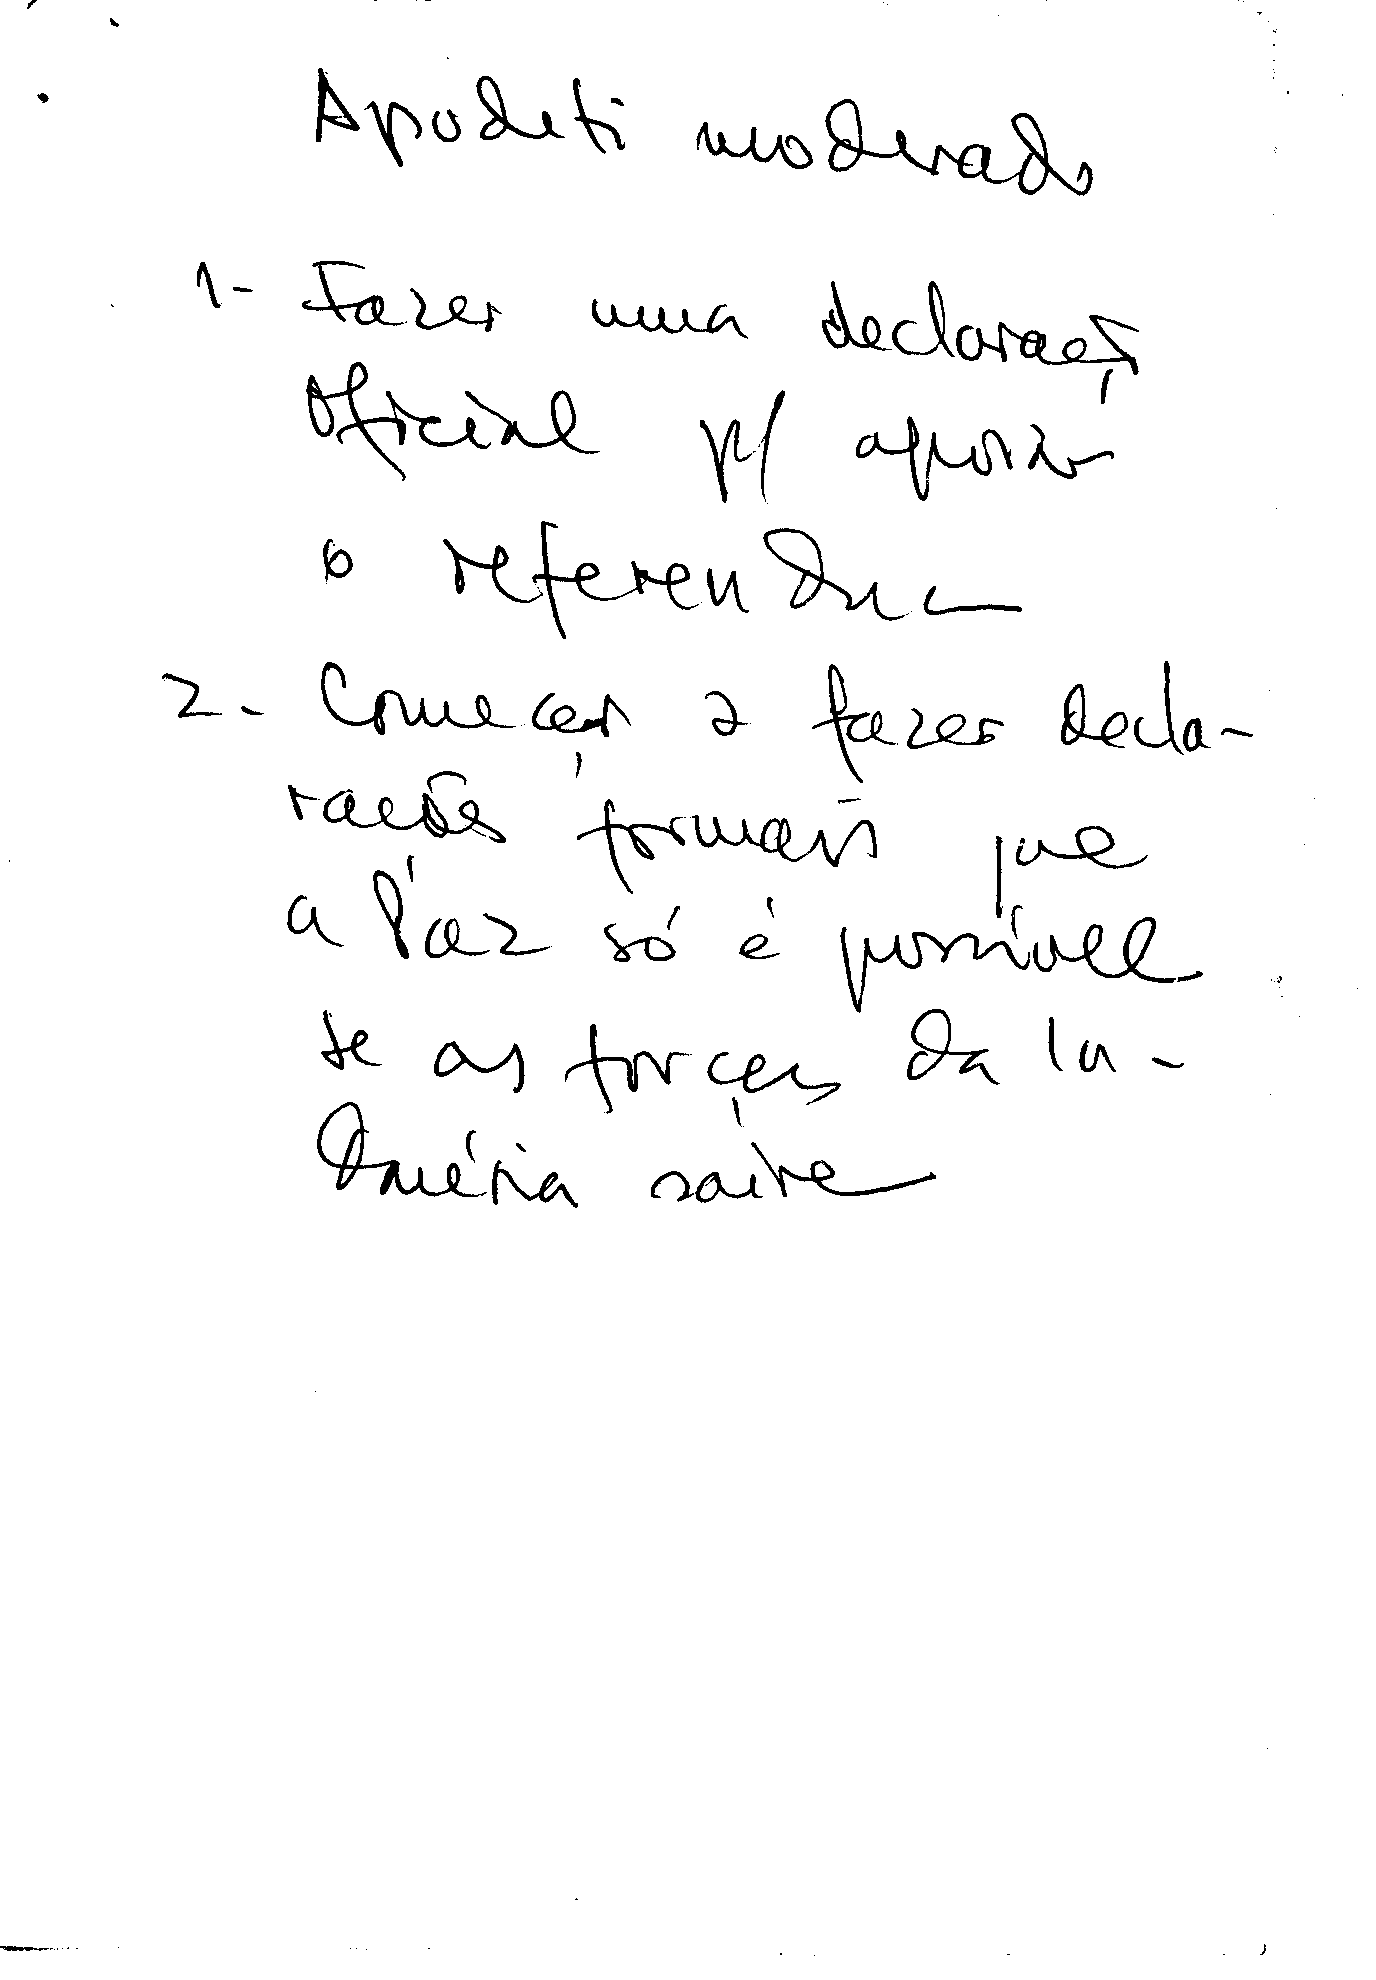 Apodeti moderado
1- Fazer uma declaração
oficial p/ apoiar
o referendum
2- Começar a fazer decla-
rações formais que
a Paz só é possível
se as forças da In-
donésia saírem